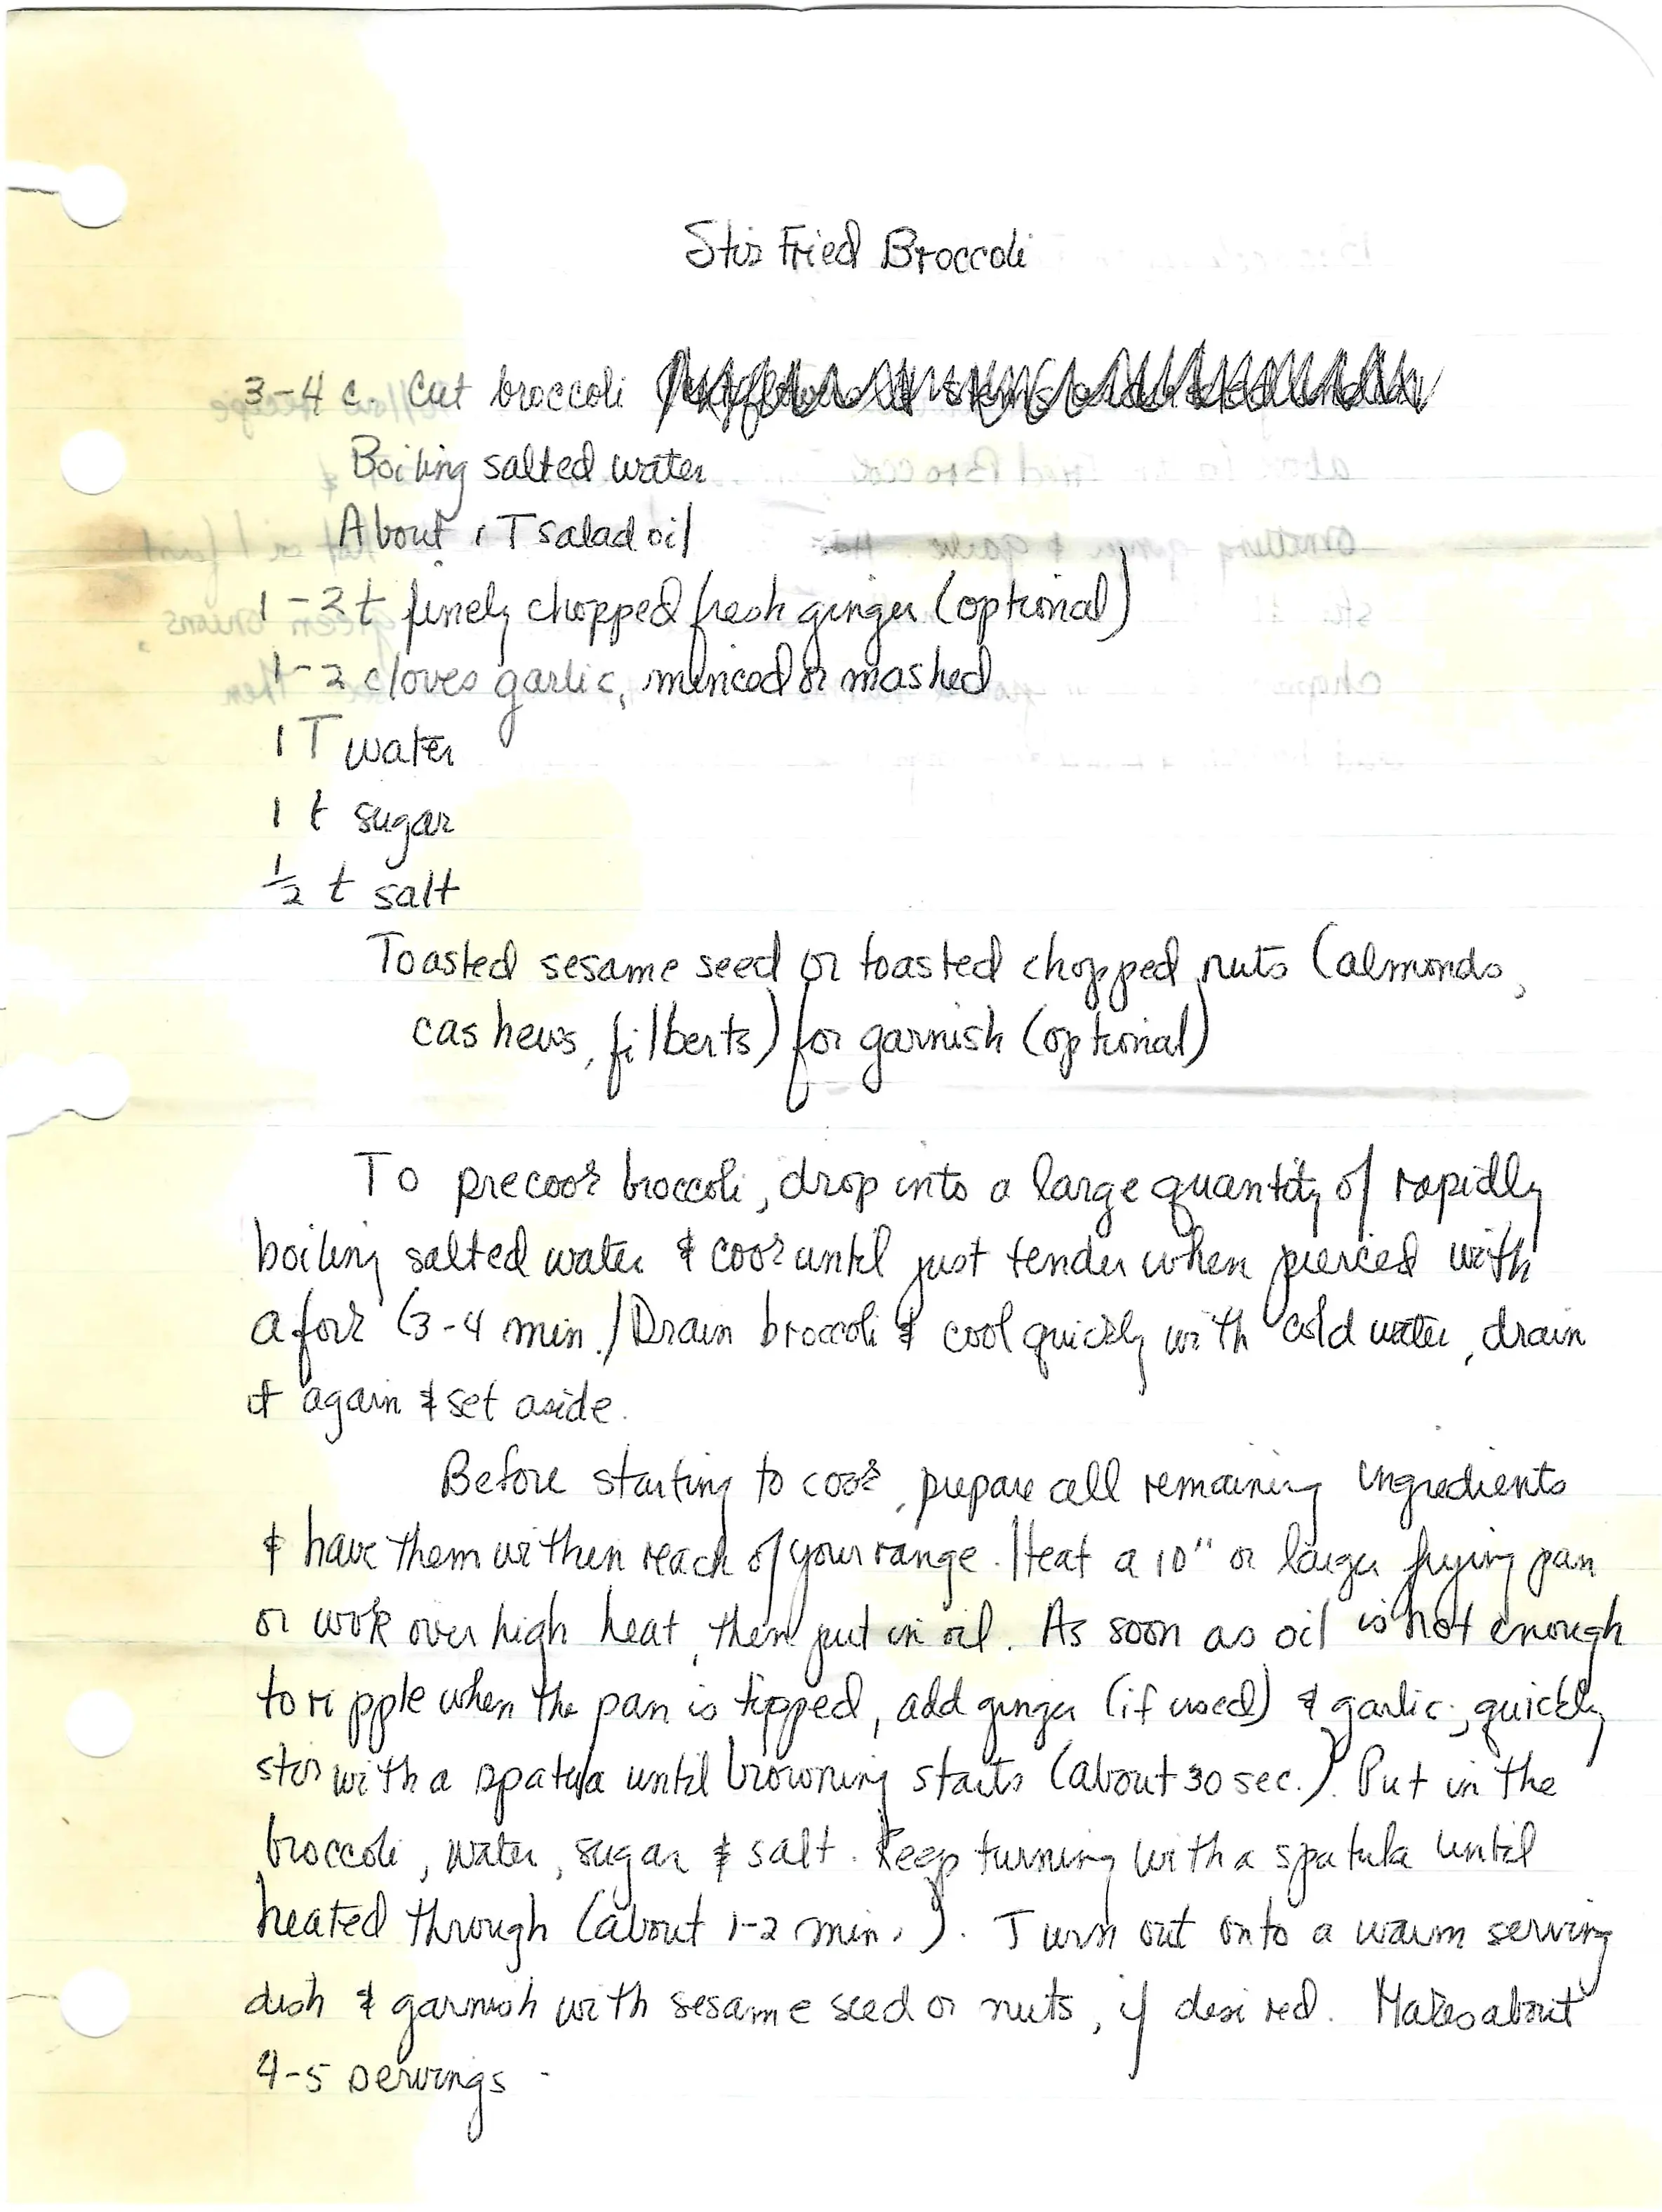 Stir Fried Broccoli
3-4 c. cut broccoli
Boiling salted water
About 1 T salad oil
1-2 t finely chopped fresh ginger (optional)
1-2 cloves garlic, minced or mashed
1 T water
1 t sugar
½ t salt
Toasted sesame seed or toasted chopped nuts (almonds,
cashews, filberts) for garnish (optional)
To precook broccoli, drop into a large quantity of rapidly
boiling salted water & cook until just tender when pierced with
a fork (3-4 min.) Drain broccoli & cool quickly with cold water, drain
it again & set aside.
Before starting to cook, prepare all remaining ingredients
& have them within reach of your range. Heat a 10" or larger frying pan
or wok over high heat, then put in oil. As soon as oil is hot enough
to ripple when the pan is tipped, add ginger (if used) & garlic; quickly
stir with a spatula until browning starts (about 30 sec.). Put in the
broccoli, water, sugar & salt. Keep turning with a spatula until
heated through (about 1-2 min.). Turn out onto a warm serving
dish & garnish with sesame seed or nuts, if desired. Makes about
4-5 servings.